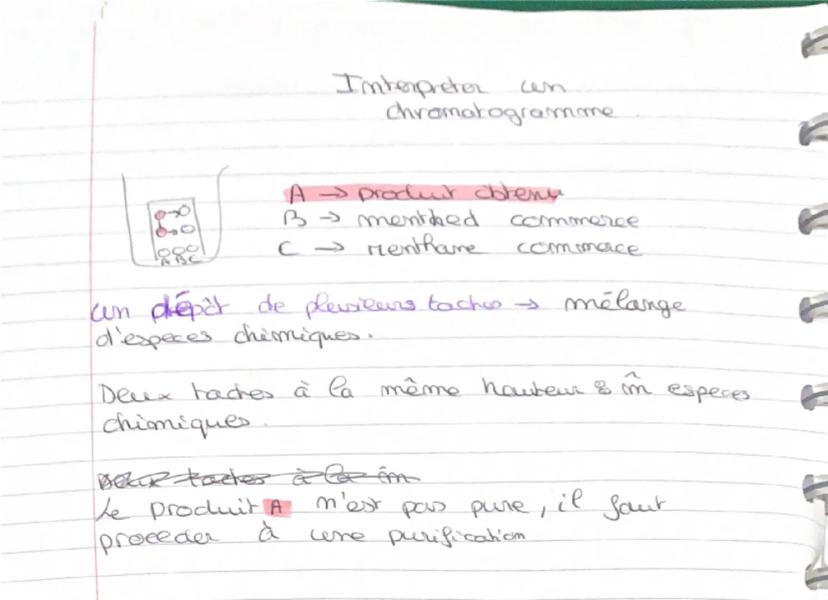 Interpreter un
chromatogramme.
A → produit obtenu
B → menthed commerce
C → menthane commerce
A B C
un dépôt de plusieurs taches → mélange
d'especes chimiques.
Deux taches à la même hauteur : m̂ especes
chimiques.
Deux taches à la m̂
Le produit A n'est pas pure, il faut
proceder à une purification